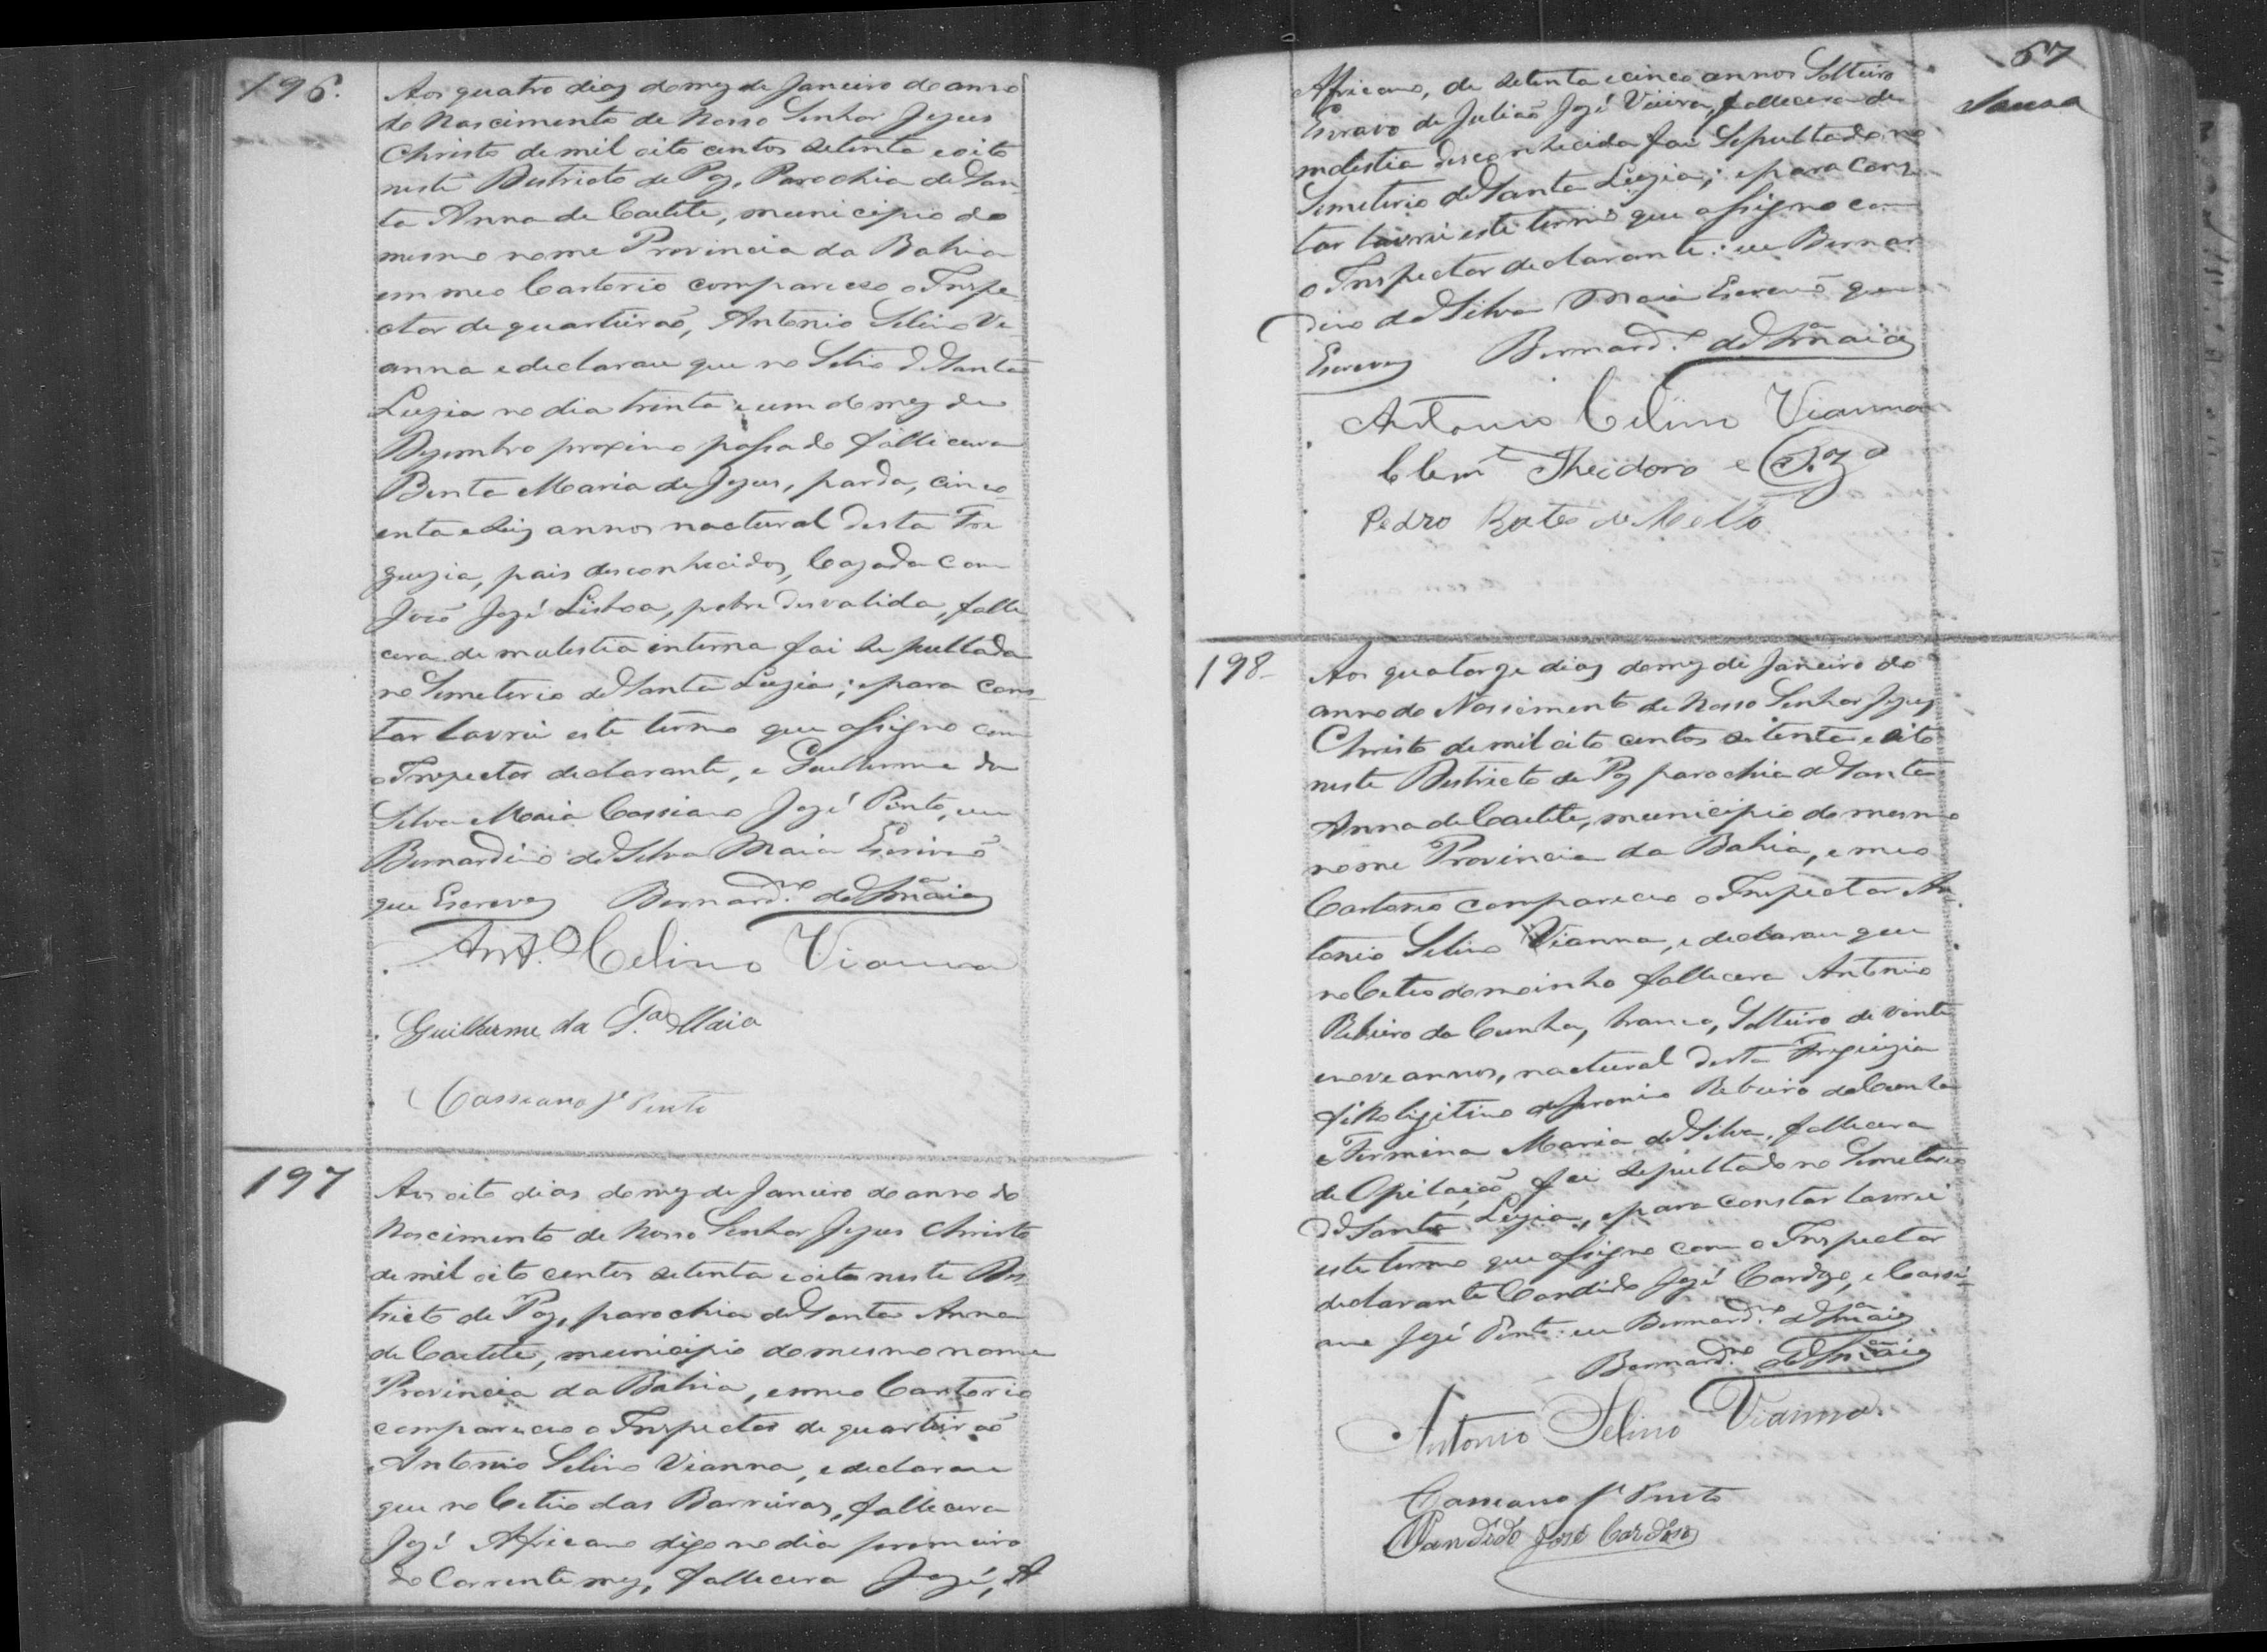 196.
Aos quatro dias do mez de Janeiro do anno
do Nascimento de Nosso Senhor Jezus
Christo de mil oito centos setenta e oito
neste Destricto de Paz, Parochia de San
ta Anna de Caetite, municipio do
mesmo nome Provincia da Bahia
em meo Cartorio compareceo o Inspe
ctor de quarteirão, Antonio Selino Vi
anna e declarou que no Sitio de Santa
Luzia no dia trinta e um do mez de
Dezembro proximo passado fallecera
Benta Maria de Jezus, parda, cinco
enta e seis annos nactural desta Fre
guezia, pais desconhecidos, Cazada com
João Jozé Lisboa, pobre desvalida, falle
cera de molestia interna foi sepultada
no Semeterio de Santa Luzia; e para cons
tar lavrei este termo que assigno com
o Inspector declarante, e Guilherme da
Silva Maia Cassiano Jozé Pinto, eu
Bernardino da Silva Maia Escrivão
que Escrevy Bernard.no da S.a Maia
Ant.o Celino Vianna
Guilherme da S.a Maia
Cassiano J.e Pinto
197
Aos oito dias do mez de Janeiro do anno do
Nascimento de Nosso Senhor Jezus Christo
de mil oito centos setenta e oito neste Des
tricto de Paz, parochia de Santa Anna
de Caetite, municipio do mesmo nome
Provincia da Bahia, e meo Cartorio
compareceo o Inspector de quarteirão
Antonio Selino Vianna, e declarou
que no Cetio das Barreiras, fallecera
Jozé Africano digo no dia primeiro
do Corrente mez, fallecera Jozé, A
57
Africano, de setenta e cinco annos Solteiro
Escravo de Julião Jozé Vieira, fallecera de
molestia desconhecida foi Sepultado no
Semeterio de Santa Luzia; e para cons
tar lavrei este termo que assigno com
o Inspector declarante: eu Bernar
dino da Silva Maia Escrivão que
Escrevy Bernard.no da S.a Maia
Antonio Celino Vianna
Clem.te Theodoro e
Pedro de Mello
198
Aos quatorze dias do mez de Janeiro do
anno do Nascimento de Nosso Senhor Jezus
Christo de mil oito centos setenta e oito
neste Destricto de Paz parochia de Santa
Anna de Caetite, municipio do mesmo
nome Provincia da Bahia, e meo
Cartorio compareceo o Inspector An
tonio Selino Vianna, e declarou que
no Cetio do moinho fallecera Antonio
Ribeiro da Cunha, branco, Solteiro de vinte
e nove annos, nactural desta Freguezia
filho ligitimo de Jeronimo Ribeiro da Cunha
e Fermina Maria da Silva, fallecera
de Opilação foi sepultado no Semeterio
de Santa Luzia, e para constar lavrei
este termo que assigno com o Inspector
declarante Candido Jozé Cardozo, e Cassi
ano Jozé Pinto: eu Bernard.no da S.a Maia
Bernard.no da S.a Maia
Antonio Selino Vianna
Cassiano J.e Pinto
Candido José Cardoso